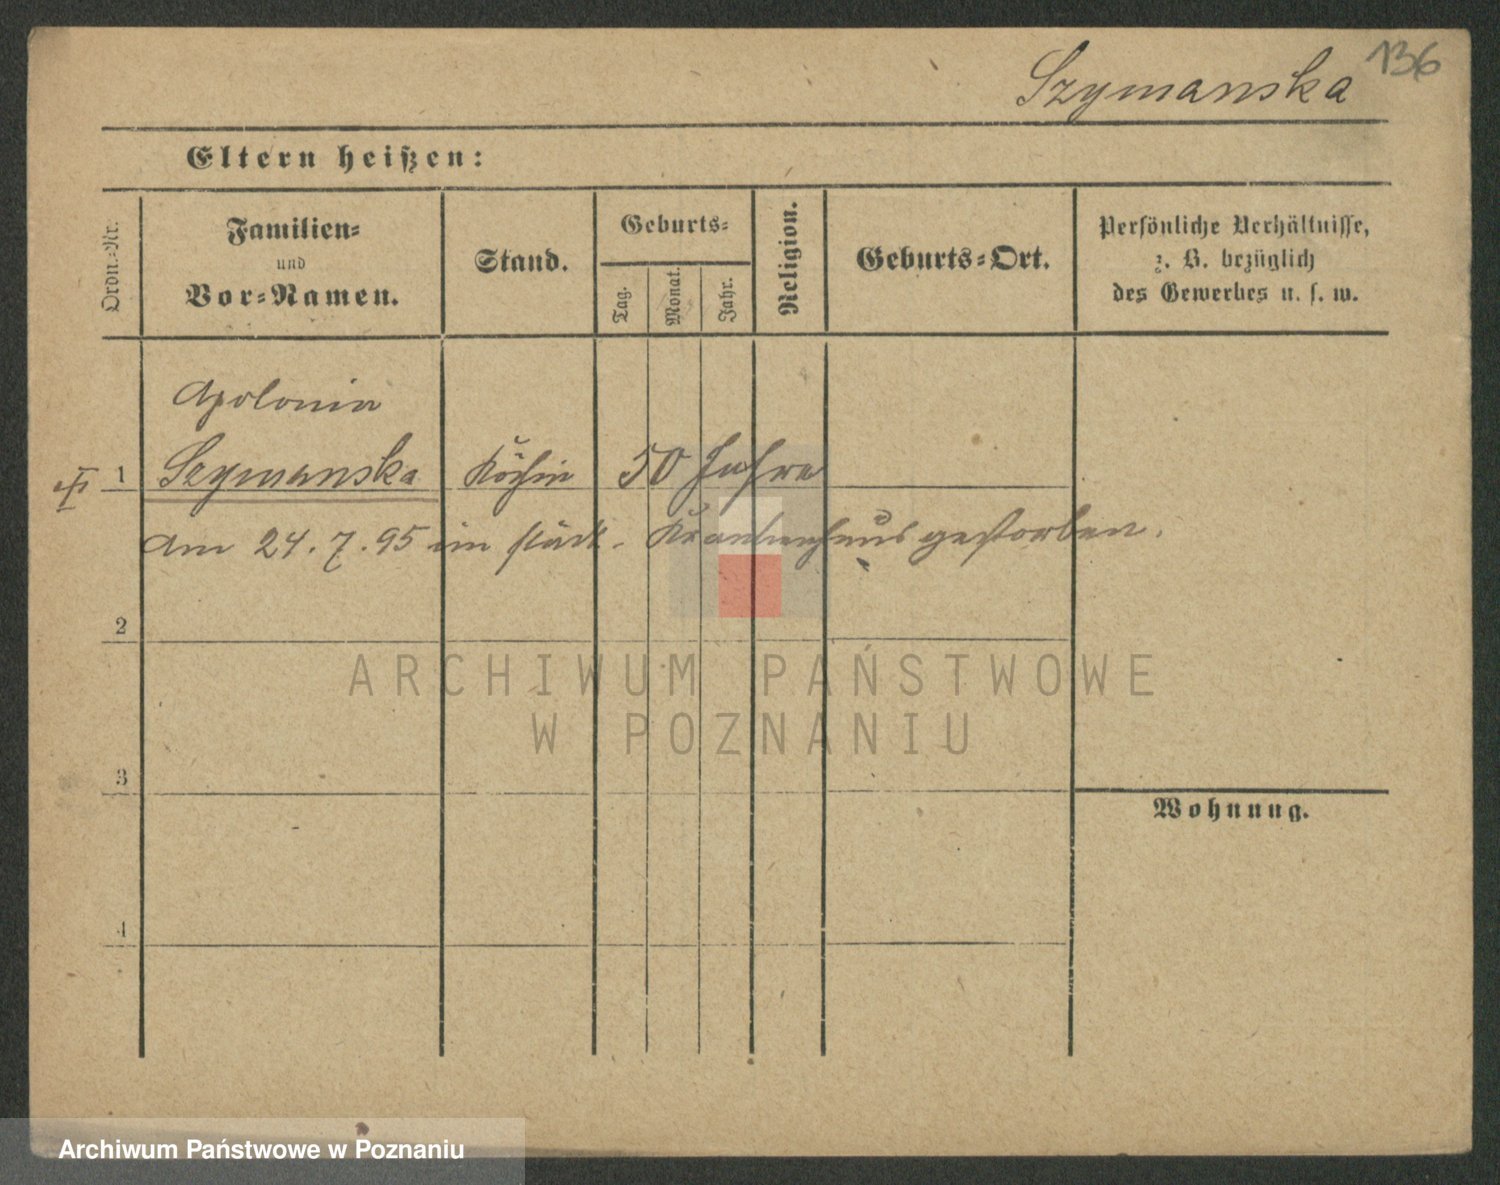 136
Szymanska
Eltern heißen:
Ordn.-Nr.
Familien-
und
Vor-Namen.
Stand.
Geburts-
Tag.
Monat.
Jahr.
Religion.
Geburts-Ort.
Persönliche Verhältnisse,
z. B. bezüglich
des Gewerbes u. s. w.
Apolonia
1 Szymanska Köchin 50 Jahre
Am 24.7.95 im städt. Krankenhaus gestorben.
2
3
4
Wohnung.
ARCHIWUM PAŃSTWOWE
W POZNANIU
Archiwum Państwowe w Poznaniu